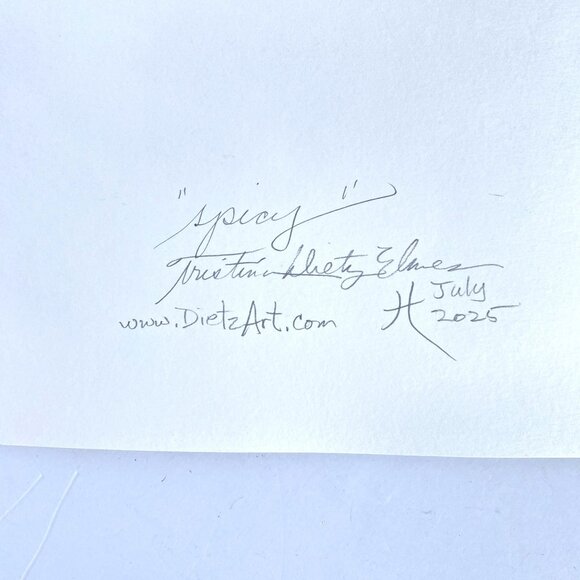 "spicy"
Tristina Dietz Elmes
www.DietzArt.com
July
2025